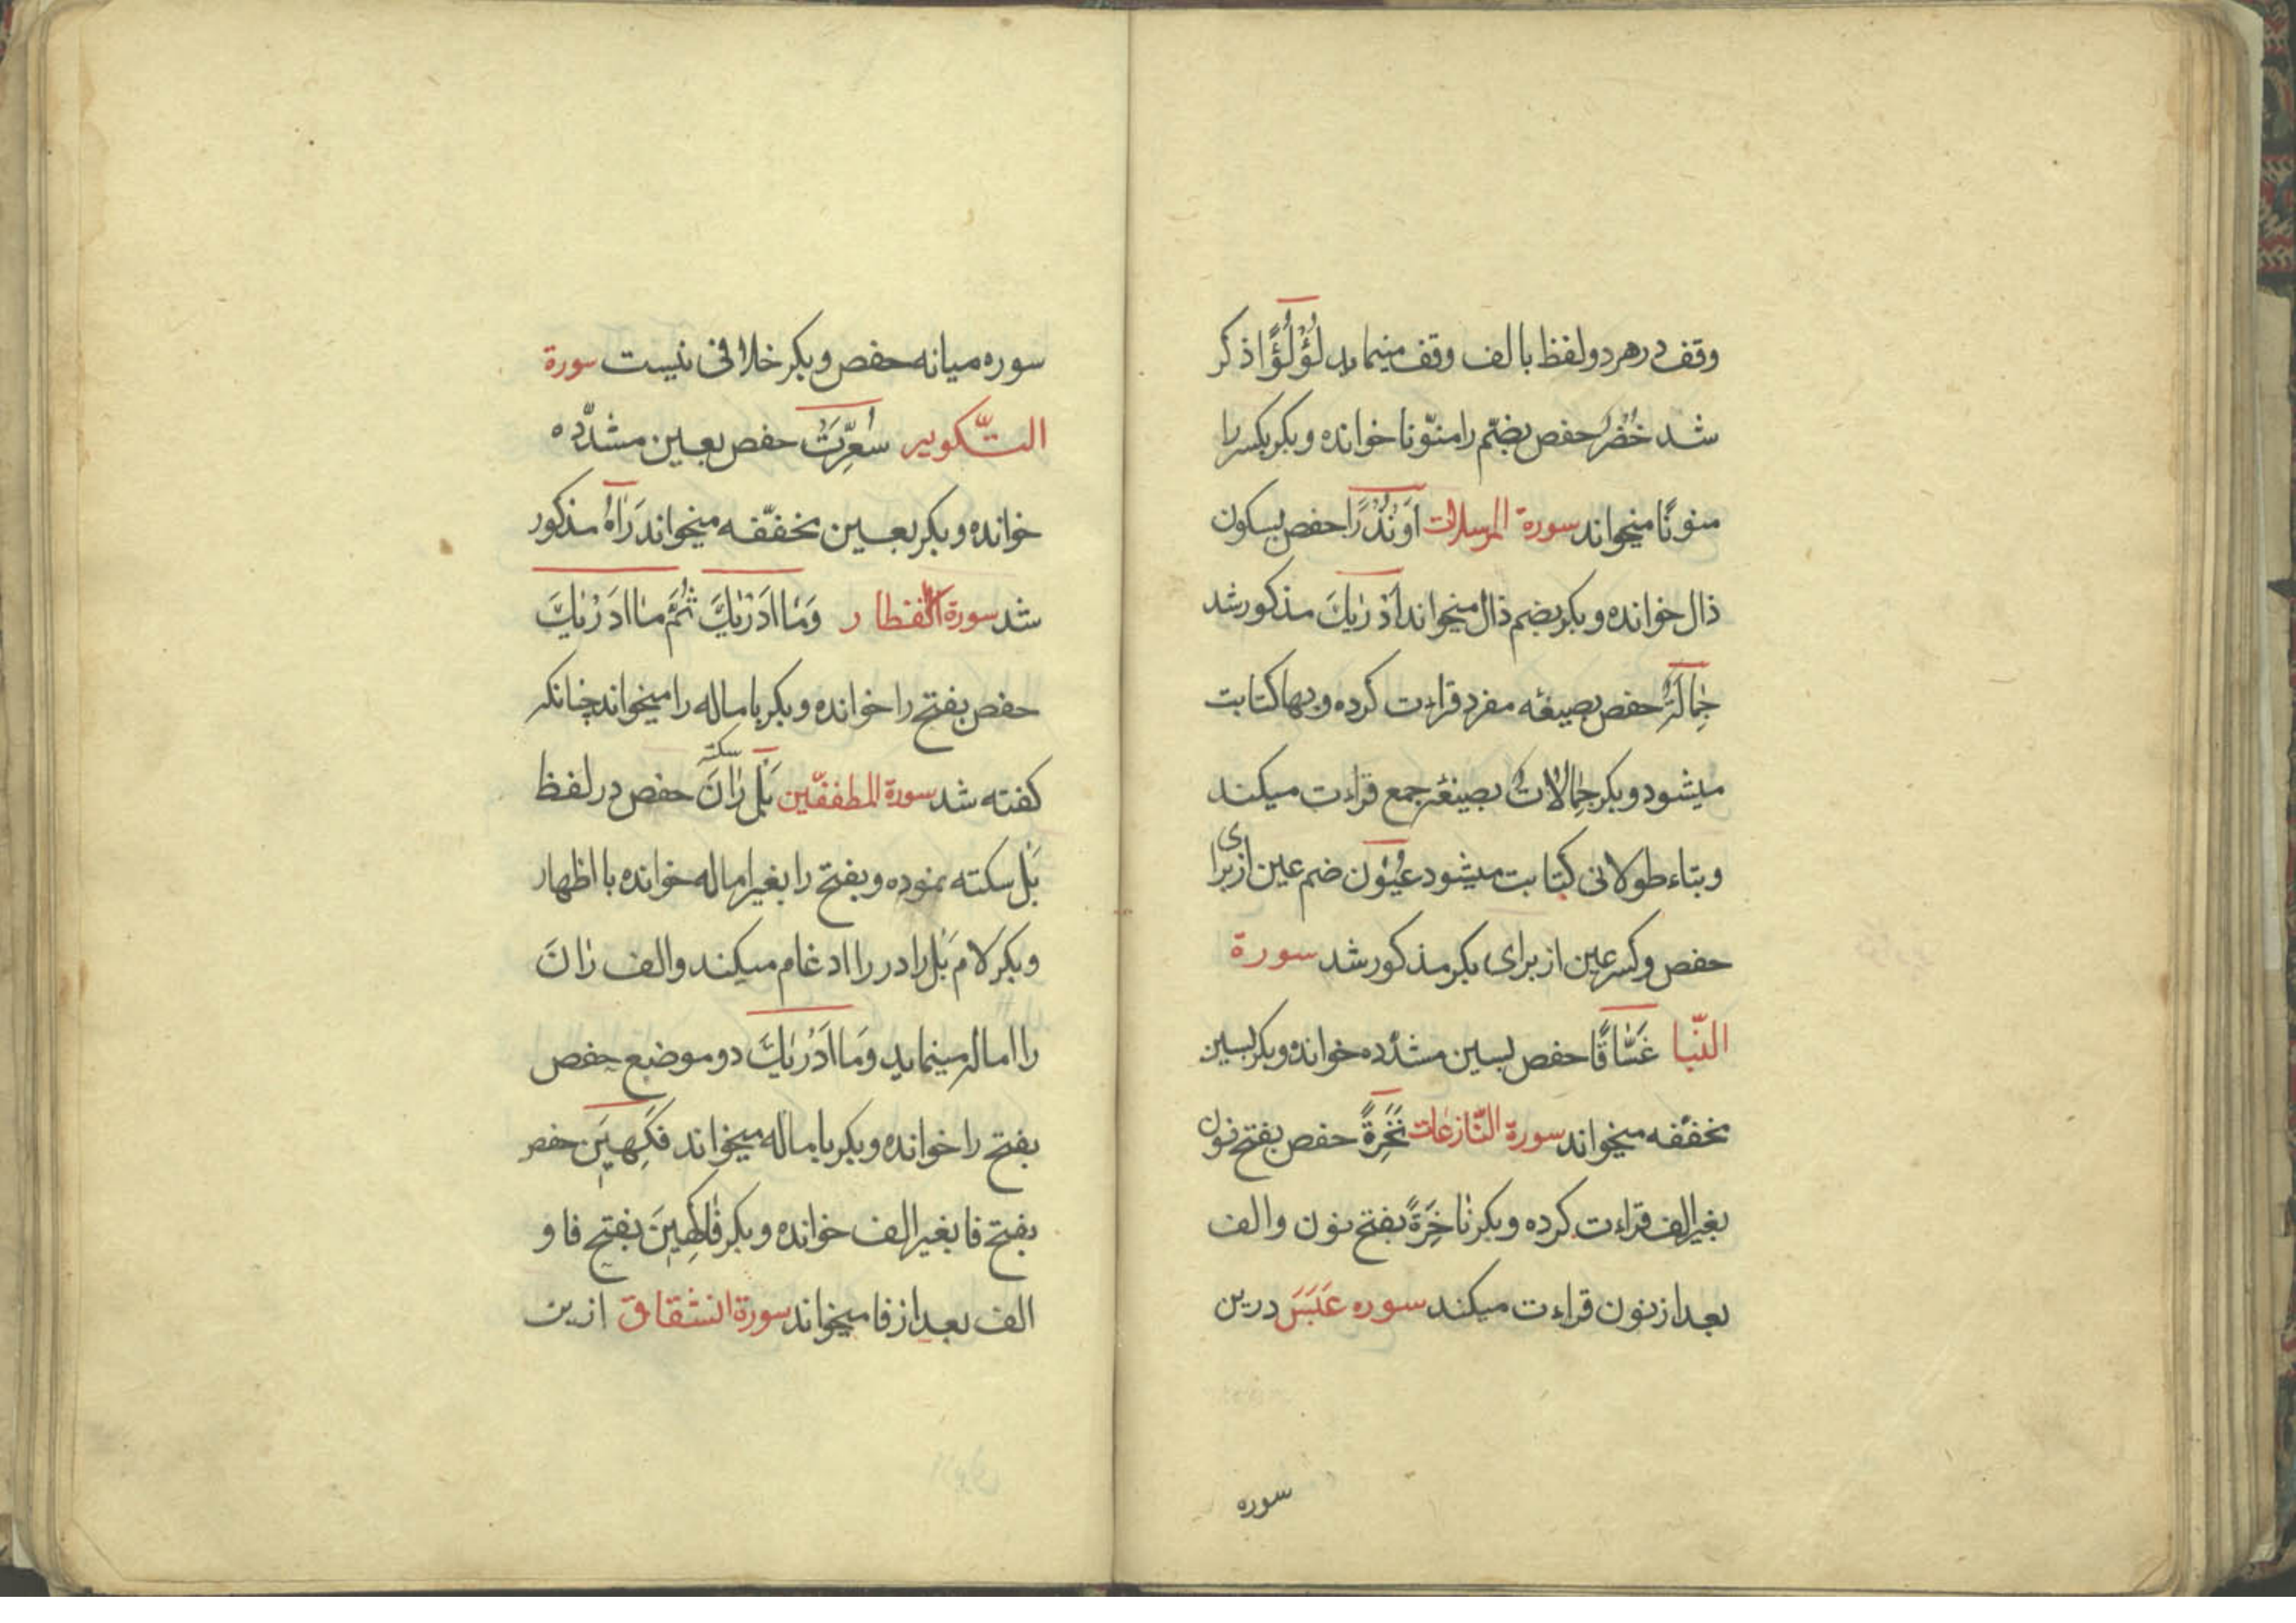 وقف در هر دو لفظ بالف وقف مینماید لُؤْلُؤًا ذکر
شد خُضْرٌ حفص بضمّ را منوّنا خوانده و بکر بکسر را
منونًا میخواند سورة المرسلات اَوْ نُذْرًا حفص بسکون
ذال خوانده و بکر بضم ذال میخواند اَدْرٰیكَ مذکور شد
جِمٰالَتٌ حفص بصیغه مفرد قراءت کرده و بها کتابت
میشود و بکر جِمٰالاتٌ بصیغهٔ جمع قراءت میکند
و بتاء طولانی کتابت میشود عُیُون ضم عین از برای
حفص و کسر عین از برای بکر مذکور شد سورة
النّبا غَسّٰاقًا حفص بسین مشدّده خوانده و بکر بسین
مخفّفه میخواند سورة النّازعات نَخِرَةً حفص بفتح نون
بغیر الف قراءت کرده و بکر نٰاخِرَةً بفتح نون و الف
بعد از نون قراءت میکند سوره عَبَسَ درین
سوره
سوره میانه حفص و بکر خلافی نیست سورة
التّکویر سُعِّرَتْ حفص بعین مشدّده
خوانده و بکر بعین مخفّفه میخواند رَاٰهُ مذکور
شد سورة الانفطار وَمٰا اَدْرٰیكَ ثُمَّ مٰا اَدْرٰیكَ
حفص بفتح را خوانده و بکر باماله را میخواند چنانکه
کفته شد سورة المطففّین بَلْ رٰانَ سکته حفص در لفظ
بَلْ سکته نموده و بفتح را بغیر اماله خوانده با اظهار
و بکر لام بَلْ را در را ادغام میکند و الف رٰانَ
را اماله مینماید وَمٰا اَدْرٰیكَ دو موضع حفص
بفتح را خوانده و بکر باماله میخواند فَکِهینَ حفص
بفتح فا بغیر الف خوانده و بکر فٰاکِهینَ بفتح فا و
الف بعد از فا میخواند سورة انشقاق ازین